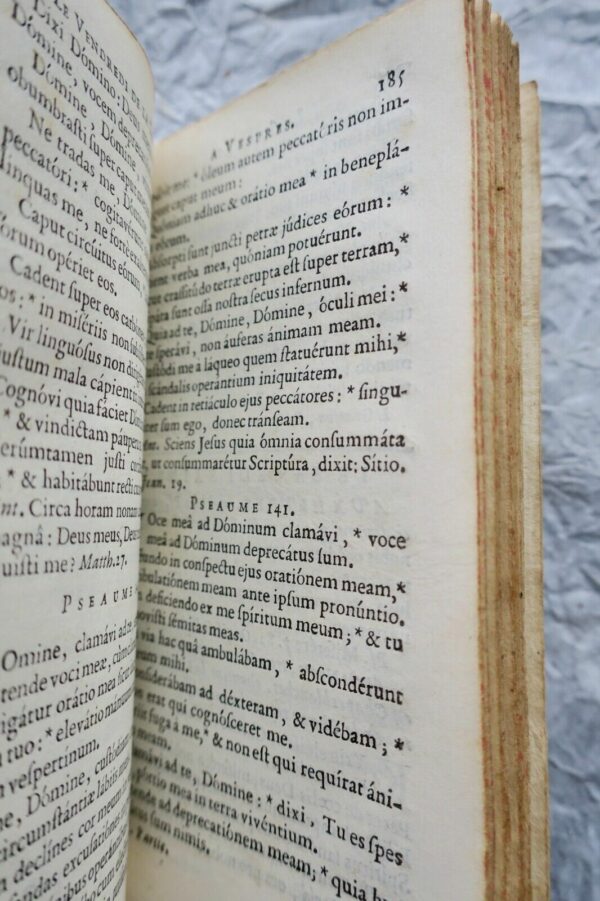 LE VENDREDI DE LA
Dixi Dómino: Deus
Dómine, vocem depre
obumbrasti super caput
Dómine, Dómine
Ne tradas me, Dómi
peccatóri: * cogitavé
linquas me, ne fortè
Caput circúitus eórum
órum opériet eos.
Cadent super eos carbó
os: * in misériis non
Vir linguósus non dirigé
justum mala cápient in
Cognóvi quia fáciet Dómi
* & vindictam páuper
erúmtamen justi con
* & habitábunt recti cu
nt. Circa horam nonam
agnâ: Deus meus, Deus
uisti me? Matth. 27.
PSEAUME
Omine, clamávi ad te
tende voci meæ, cùm cla
igátur orátio mea sicut
tuo: * elevátio mánuum
vespertínum.
e, Dómine, custódiam
circumstántiæ lábiis me
declínes cor meum
endas excusatiónes
nibus operánti
bo cum e
185
A VESPRES.
me: * óleum autem peccatóris non im-
caput meum:
óniam adhuc & orátio mea * in beneplá-
eórum.
absorpti sunt juncti petræ júdices eórum: *
ent verba mea, quóniam potuérunt.
ut crassitúdo terræ erupta est super terram, *
ata sunt ossa nostra secus infernum.
quia ad te, Dómine, Dómine, óculi mei: *
te sperávi, non áuferas ánimam meam.
custódi me à láqueo quem statuérunt mihi, *
scándalis operántium iniquitátem.
Cadent in retiáculo ejus peccatóres: * singu-
ter sum ego, donec tránseam.
nt. Sciens Jesus quia ómnia consummáta
, ut consummarétur Scriptúra, dixit; Sítio.
Jean. 19.
PSEAUME 141.
Oce meâ ad Dóminum clamávi, * voce
meâ ad Dóminum deprecátus sum.
undo in conspectu ejus oratiónem meam, *
ibulatiónem meam ante ipsum pronúntio.
n deficiendo ex me spíritum meum; * & tu
ovisti sémitas meas.
via hac quâ ambulábam, * abscondérunt
um mihi.
nsiderábam ad déxteram, & vidébam; *
erat qui cognósceret me.
it fuga à me, * & non est qui requírat áni-
meam.
ávi ad te, Dómine: * dixi, Tu es spes
pórtio mea in terra vivéntium.
nde ad deprecatiónem meam; * quia hu-
us sum nimis.